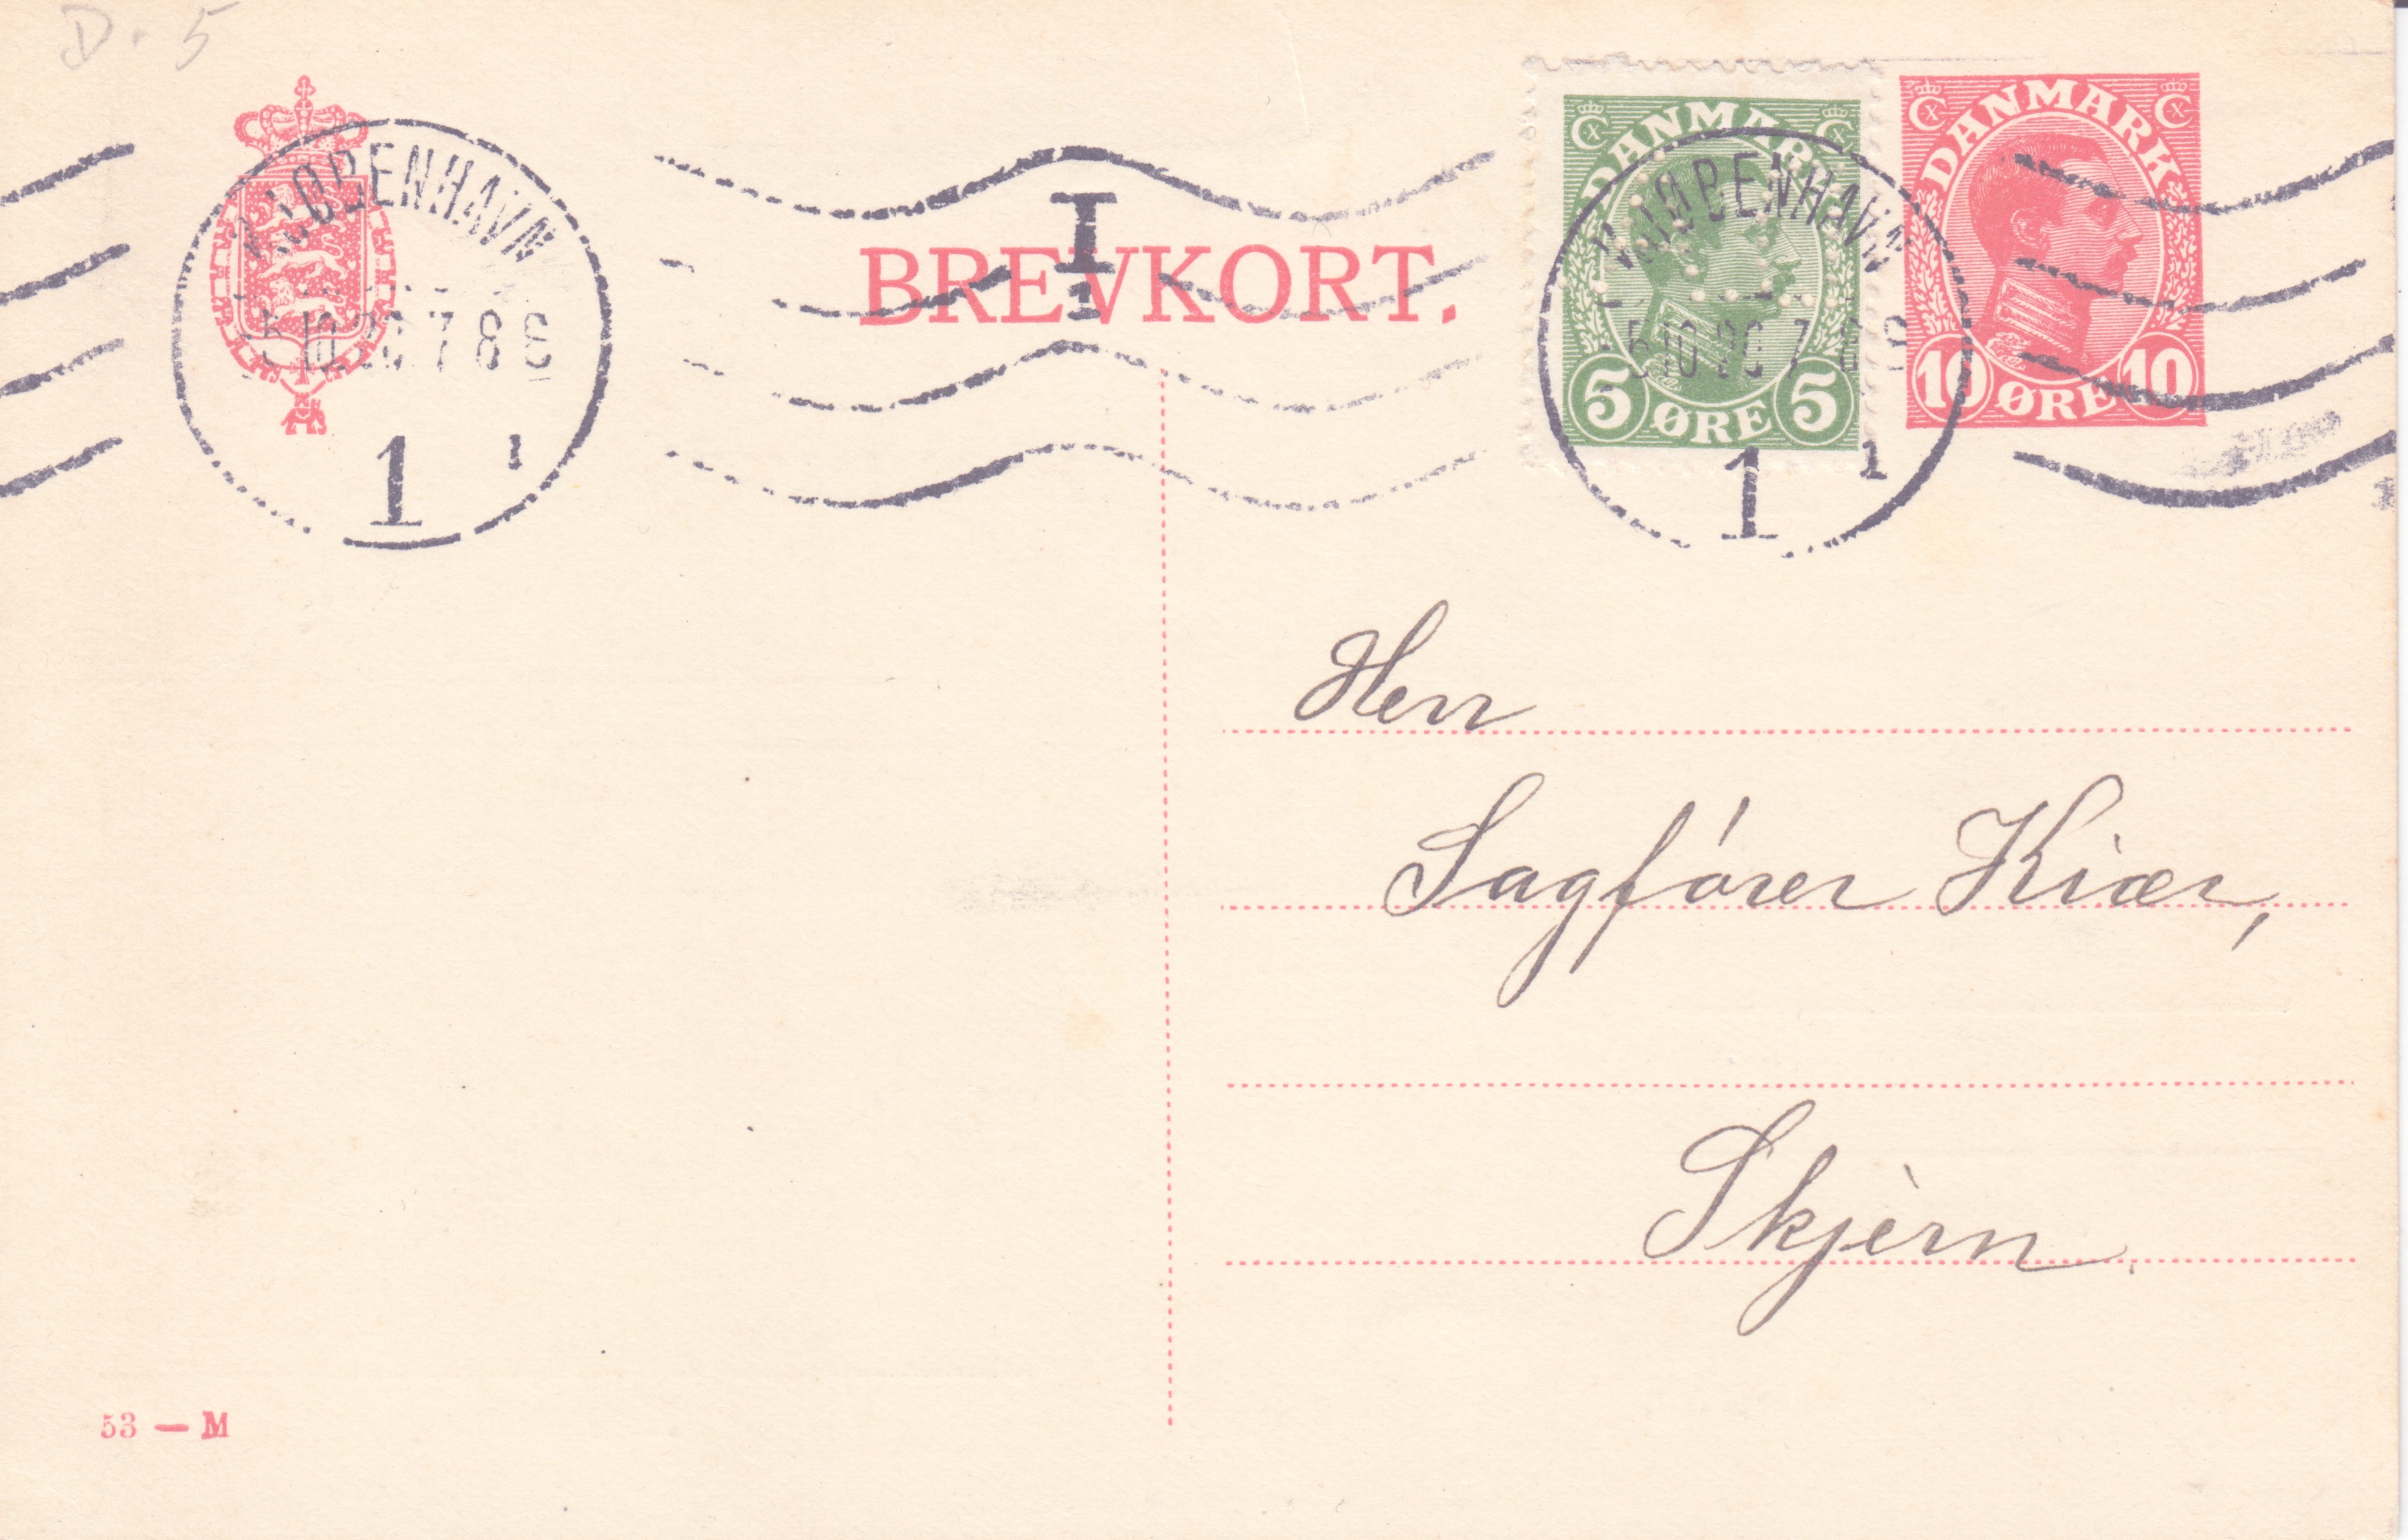 D. 5
KJØBENHAVN
5 10 20 7 8 E
1 1
I
BREVKORT.
DANMARK
5 ØRE 5
KJØBENHAVN
5 10 20 7 8 E
1 1
DANMARK
10 ØRE 10
Herr
Sagfører Kiær,
Skjèrn.
53 — M